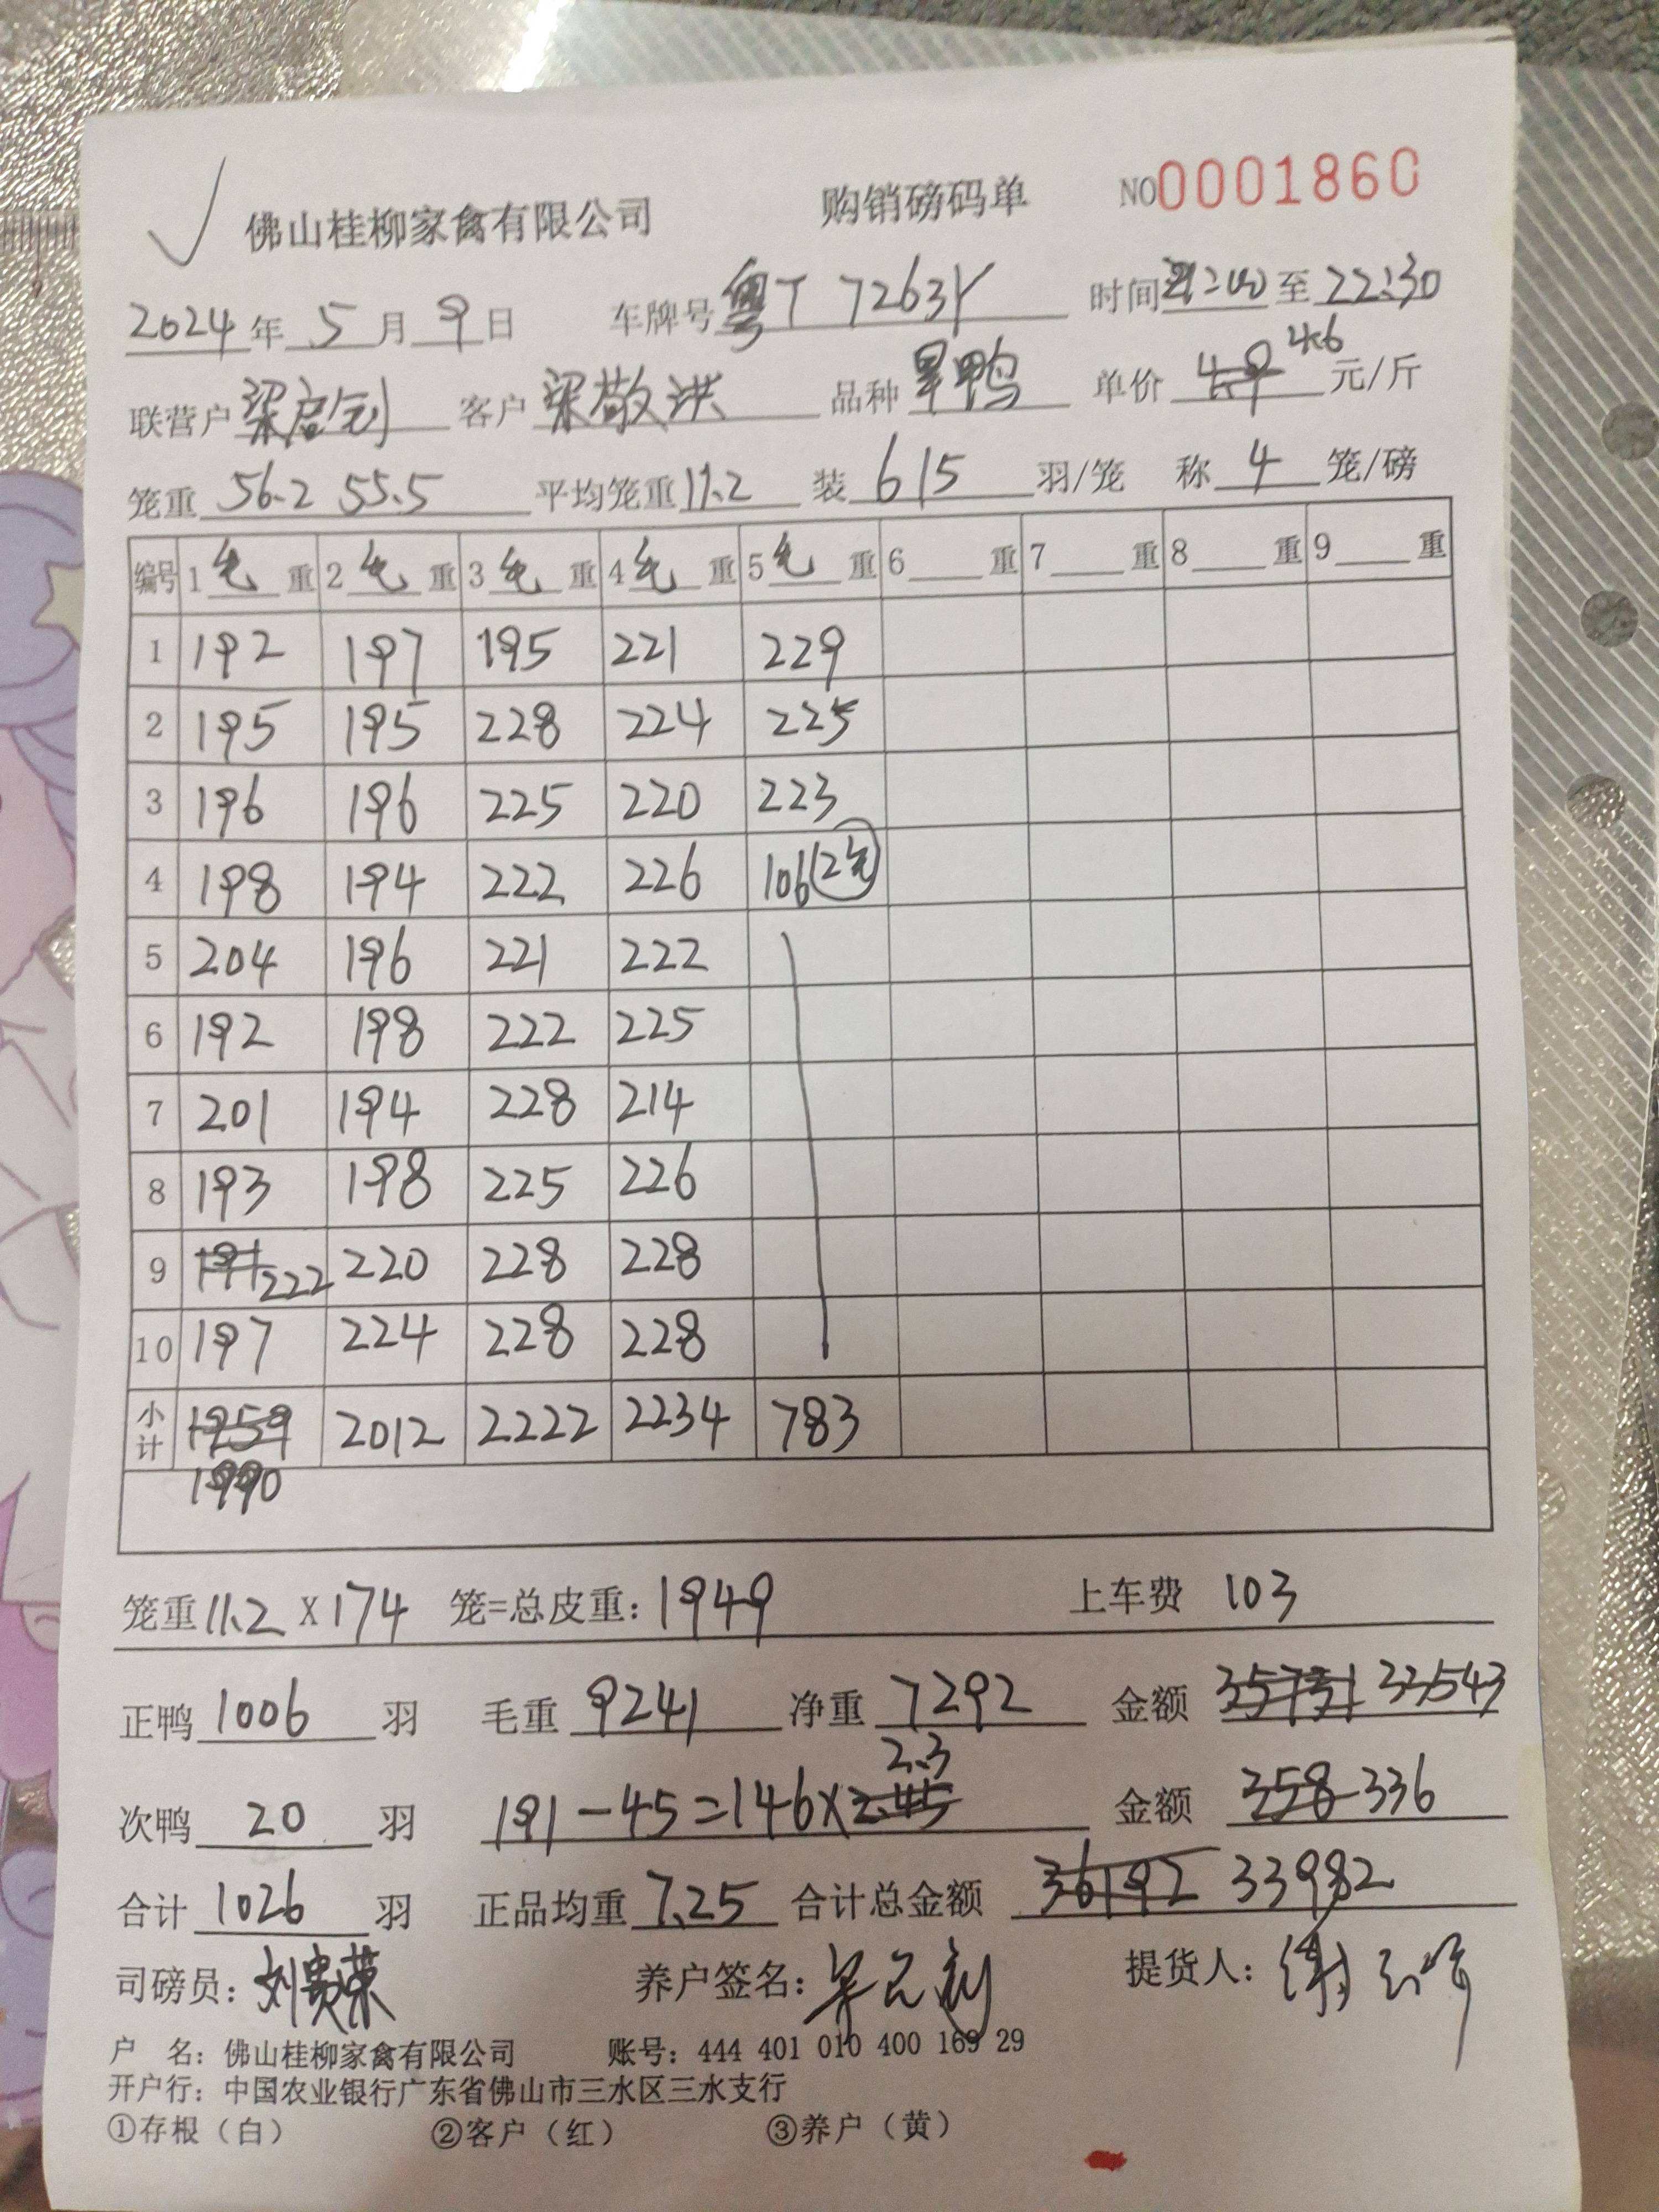 佛山桂柳家禽有限公司 购销磅码单 NO0001860
2024年5月9日 车牌号粤T 7263Y 时间21:00至22:30
联营户梁启钊 客户梁敬洪 品种旱鸭 单价4.9 4.6元/斤
笼重56.2 55.5 平均笼重11.2 装6 15羽/笼 称4笼/磅
编号 1毛重 2毛重 3毛重 4毛重 5毛重 6重 7重 8重 9重
1 192 197 195 221 229
2 195 195 228 224 225
3 196 196 225 220 223
4 198 194 222 226 106(2笼)
5 204 196 221 222
6 192 198 222 225
7 201 194 228 214
8 193 198 225 226
9 191 222 220 228 228
10 197 224 228 228
小计 1959 2012 2222 2234 783
1990
笼重11.2X174 笼=总皮重:1949 上车费 103
正鸭1006羽 毛重9241 净重7292 金额35731 33543
2.3
次鸭20羽 191-45=146X2.45 金额358 336
合计1026羽 正品均重7.25 合计总金额36192 33982
司磅员:刘贵荣 养户签名: 提货人:
户 名:佛山桂柳家禽有限公司 账号:444 401 010 400 169 29
开户行:中国农业银行广东省佛山市三水区三水支行
①存根(白) ②客户(红) ③养户(黄)